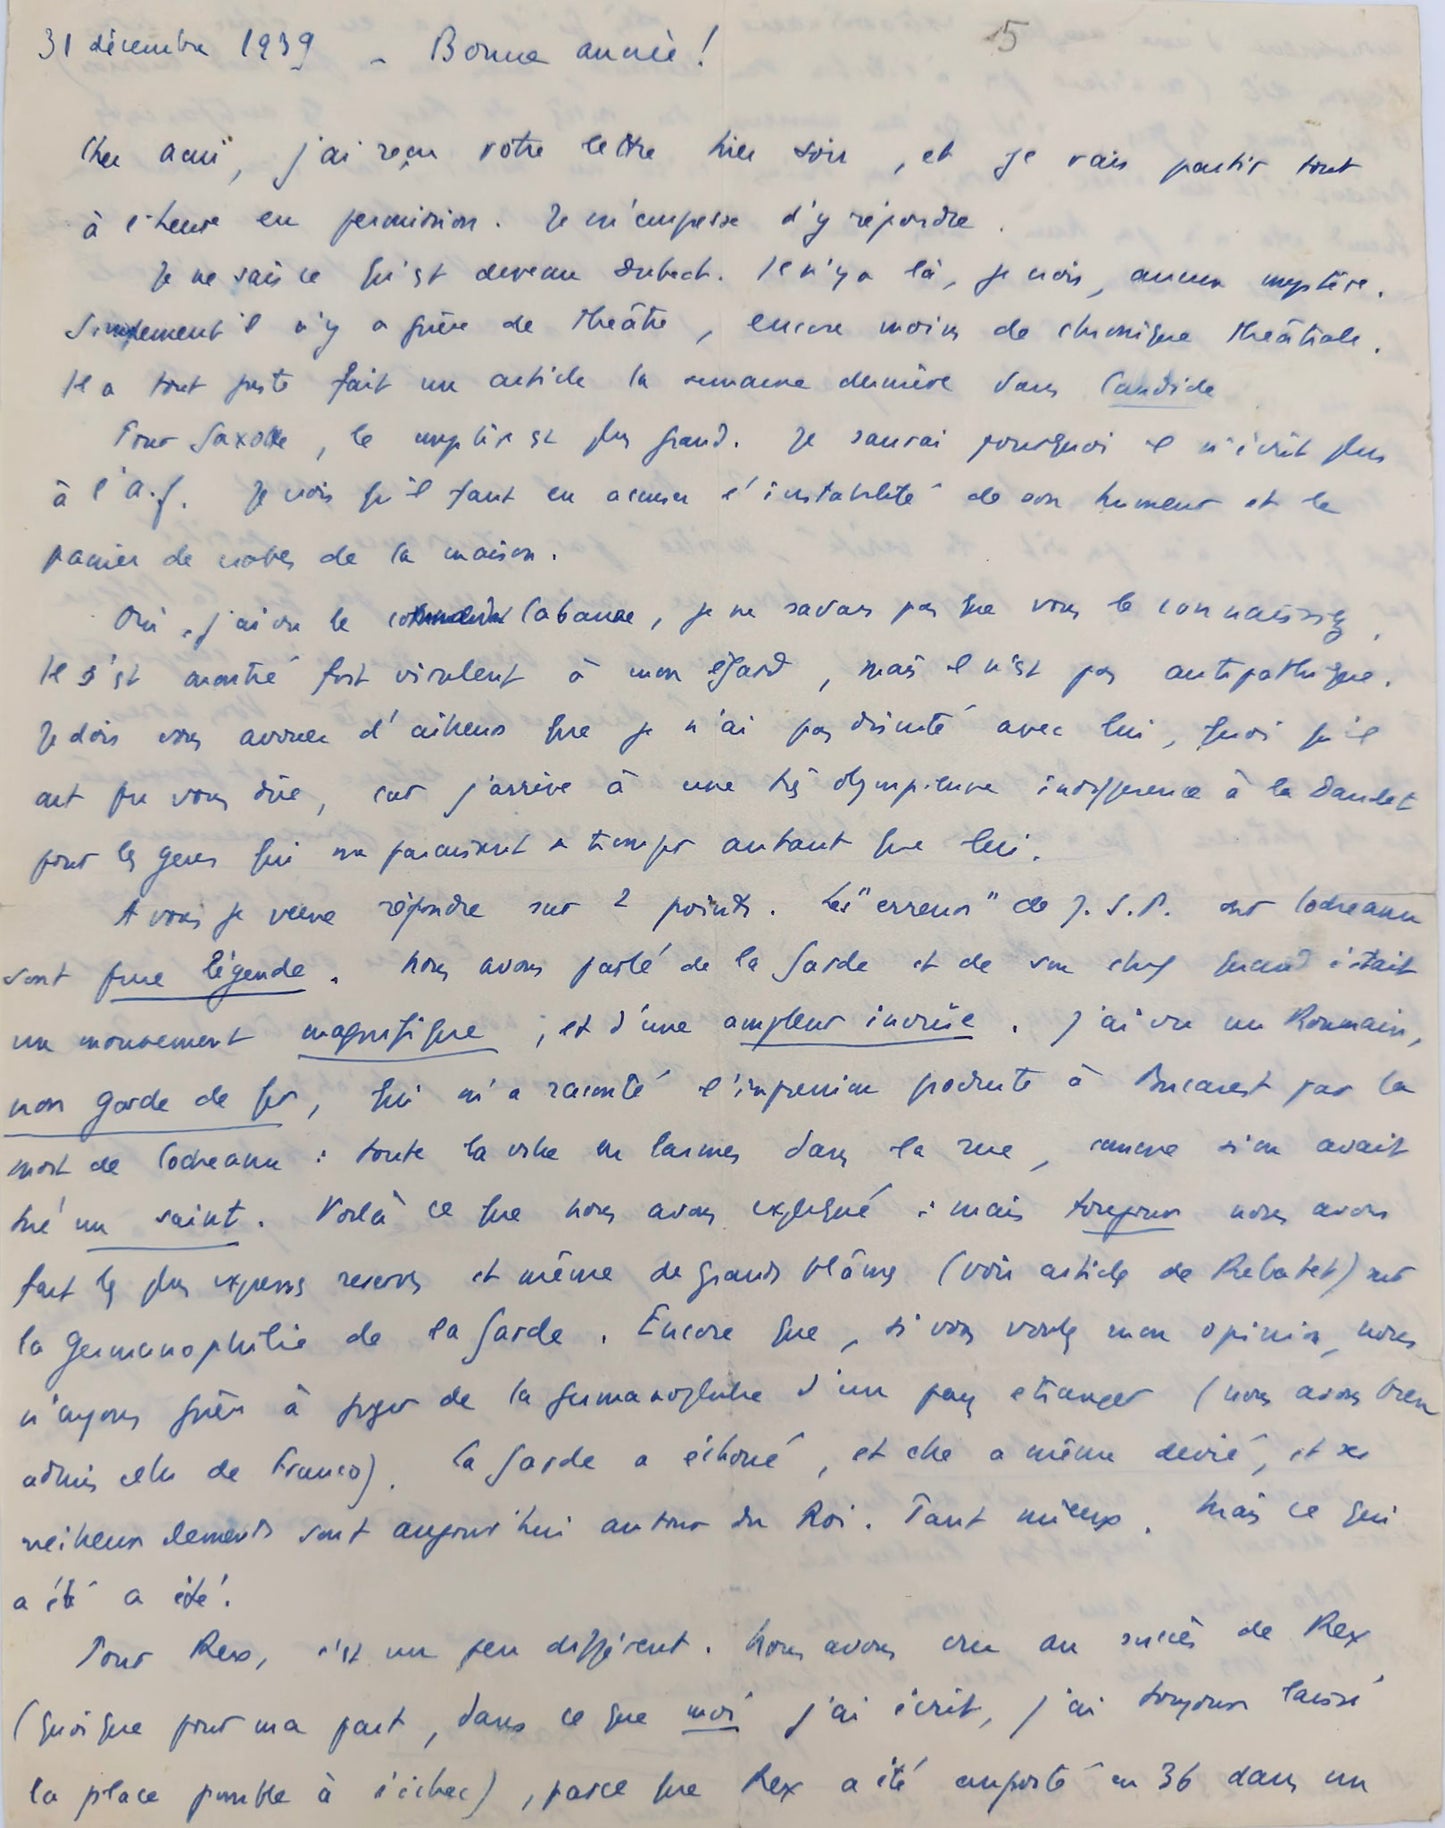 31 décembre 1939 - Bonne année !
5
Cher ami, j'ai reçu votre lettre hier soir, et je vais partir tout
à l'heure en permission. Je m'empresse d'y répondre.
Je ne sais ce qu'est devenu Dubech. Il n'y a là, je crois, aucun mystère.
Simplement il n'y a guère de théâtre, encore moins de chronique théâtrale.
Il a tout juste fait un article la semaine dernière dans Candide
Pour Gaxotte, le mystère est plus grand. Je saurai pourquoi il n'écrit plus
à l'A.f. Je crois qu'il faut en accuser l'instabilité de son humeur et le
panier de crabes de la maison.
Oui, j'ai vu le Cabanne, je ne savais pas que vous le connaissiez,
Il s'est montré fort virulent à mon égard, mais il n'est pas antipathique.
Je dois vous avouer d'ailleurs que je n'ai pas discuté avec lui, quoi qu'il
ait pu vous dire, car j'arrive à une très olympienne indifférence à la Daudet
pour les gens qui me paraissent se tromper autant que lui.
A vous je veux répondre sur 2 points. Les "erreurs" de J.S.P. sur Codreanu
sont pure légende. Nous avons parlé de la Garde et de son chef quand c'était
un mouvement magnifique, et d'une ampleur inouïe. J'ai vu un Roumain,
non garde de fer, qui m'a raconté l'impression produite à Bucarest par la
mort de Codreanu : toute la ville en larmes dans la rue, comme si on avait
tué un saint. Voilà ce que nous avons expliqué : mais toujours nous avons
fait les plus expresses réserves et même de grands blâmes (voir article de Rebatet) sur
la germanophilie de la Garde. Encore que, si vous voulez mon opinion, nous
n'ayons guère à juger de la germanophilie d'un pays étranger (nous avons bien
admis celle de Franco). La Garde a échoué, et elle a même dévié, et ses
meilleurs éléments sont aujourd'hui autour du Roi. Tant mieux. Mais ce qui
a été a été !
Pour Rex, c'est un peu différent. Nous avons cru au succès de Rex
(quoique pour ma part, dans ce que moi j'ai écrit, j'ai toujours laissé
la place possible à l'échec), parce que Rex a été emporté en 36 dans un